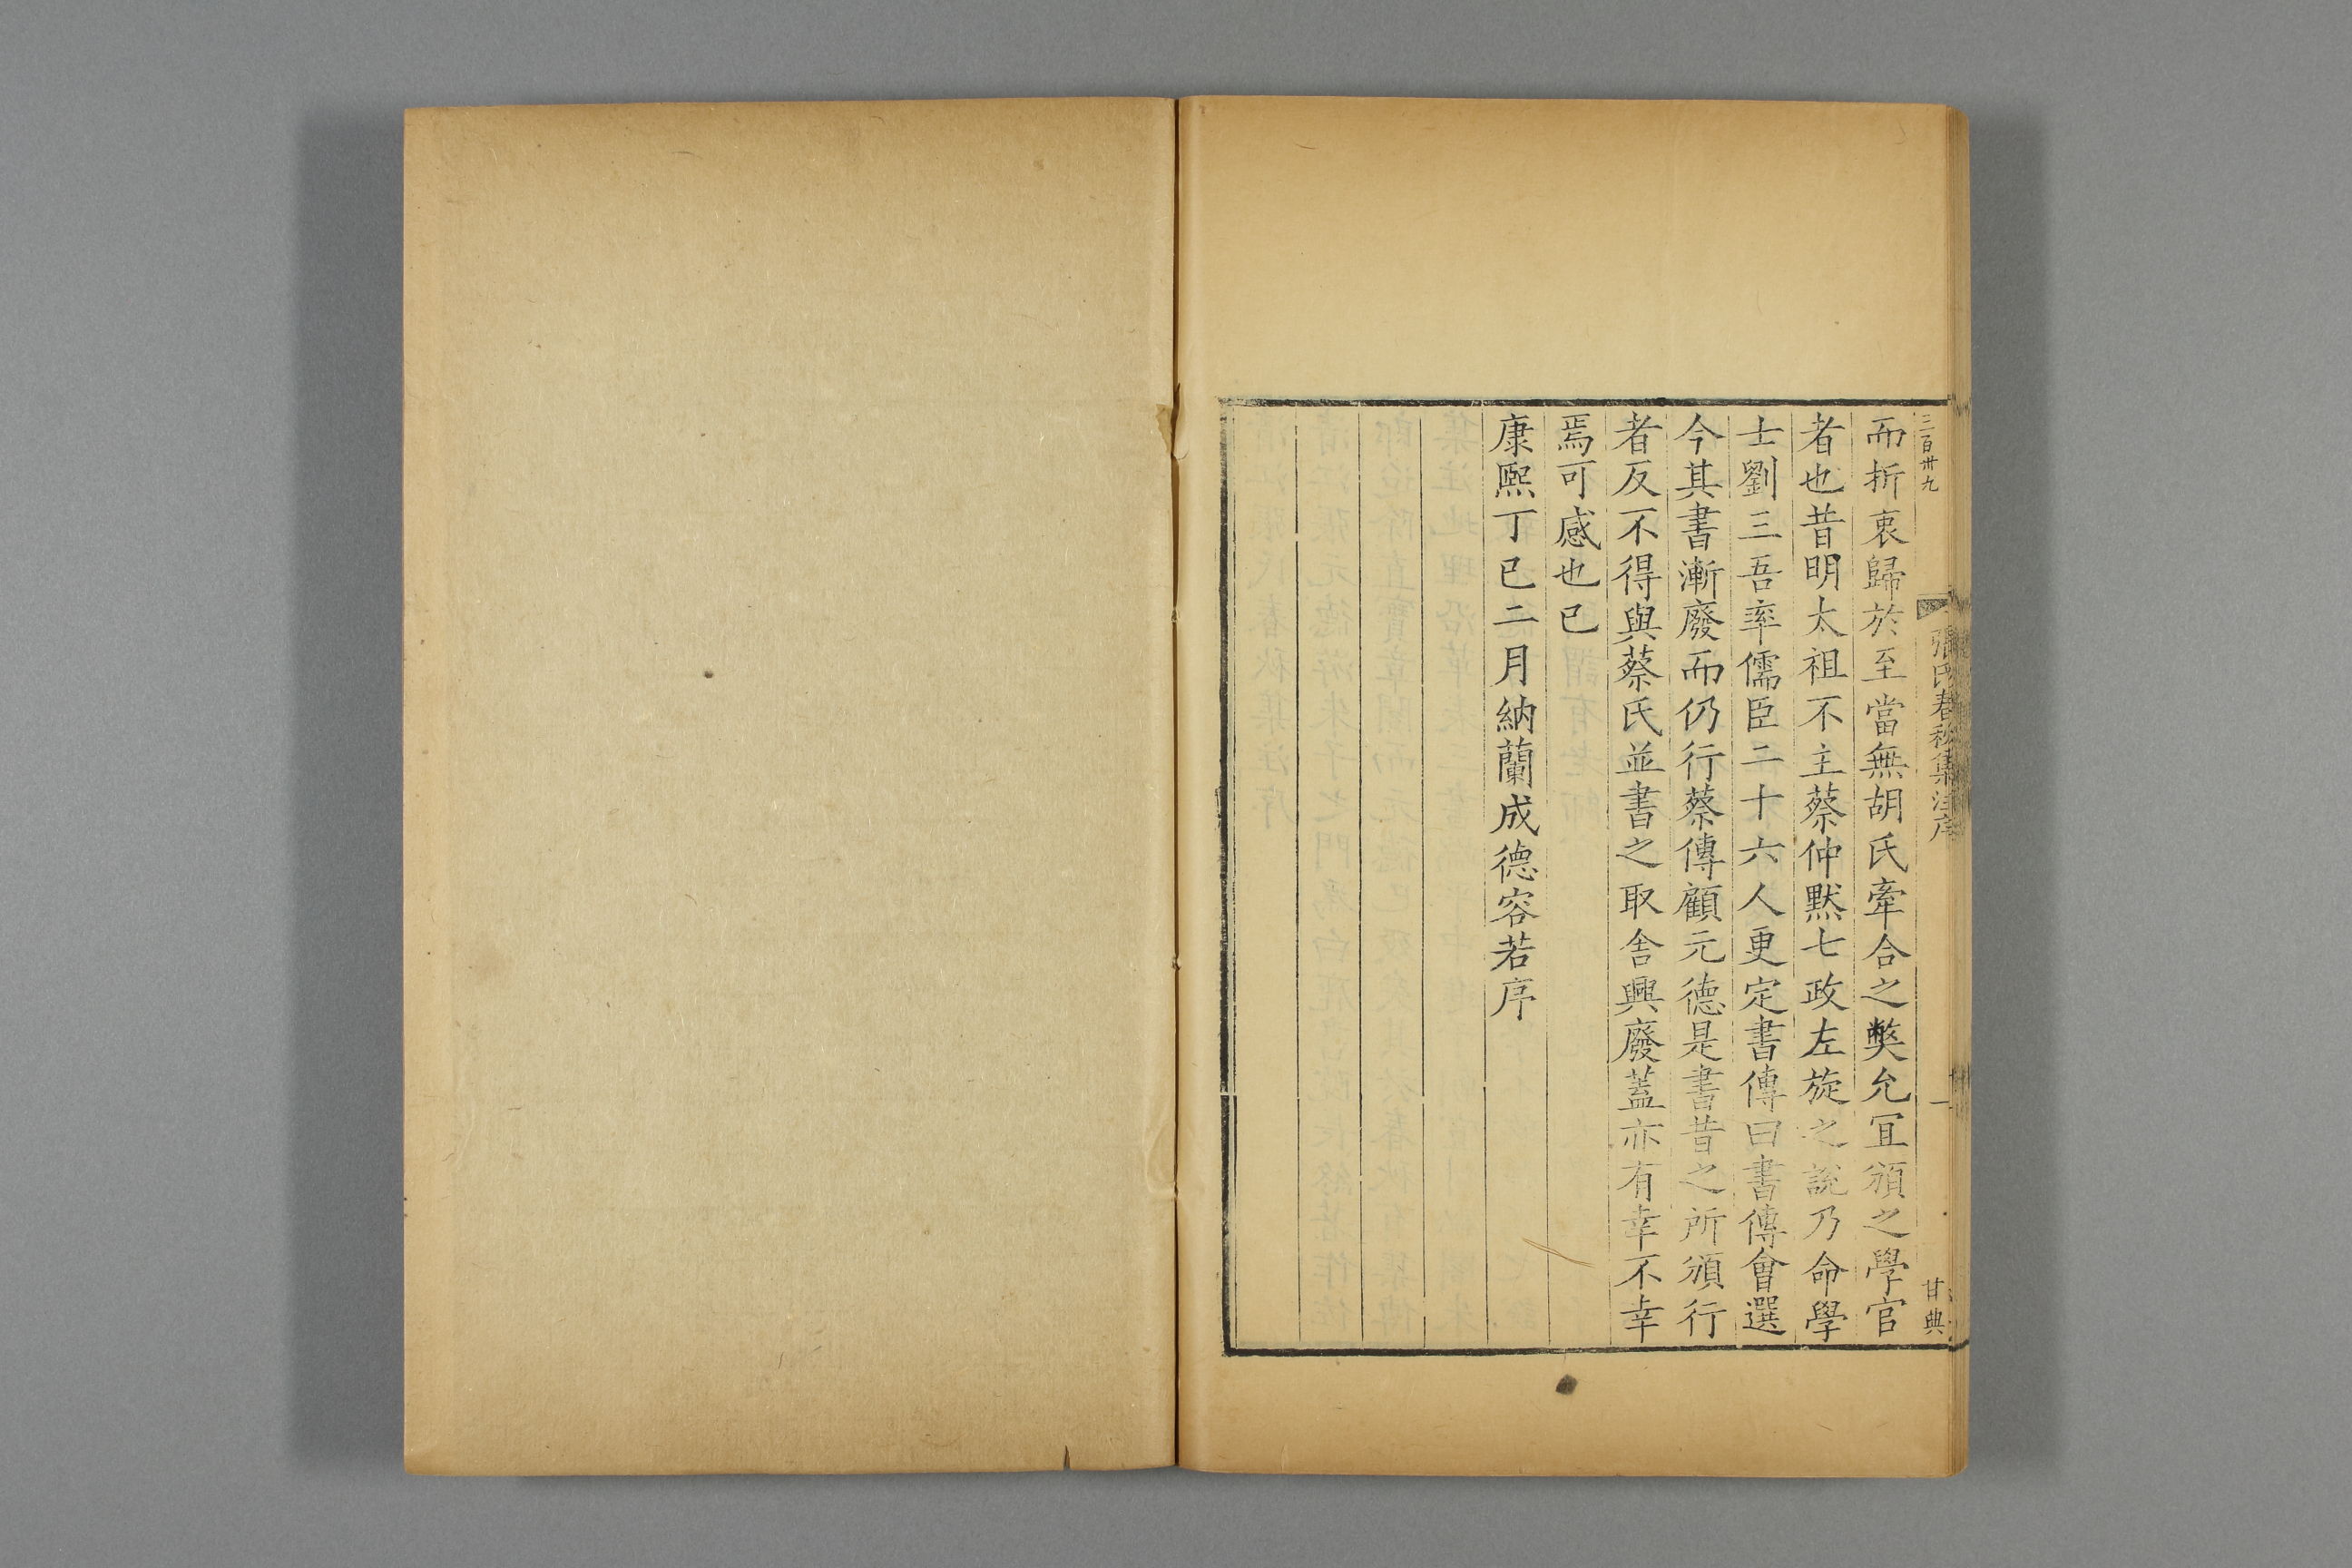 三百卅九
張氏春秋集注序
一
甘典
而折衷歸於至當無胡氏牽合之弊允宜頒之學官
者也昔明太祖不主蔡仲默七政左旋之說乃命學
士劉三吾率儒臣二十六人更定書傳曰書傳會選
今其書漸廢而仍行蔡傳顧元德是書昔之所頒行
者反不得與蔡氏並書之取舍興廢蓋亦有幸不幸
焉可感也已
康熙丁巳二月納蘭成德容若序